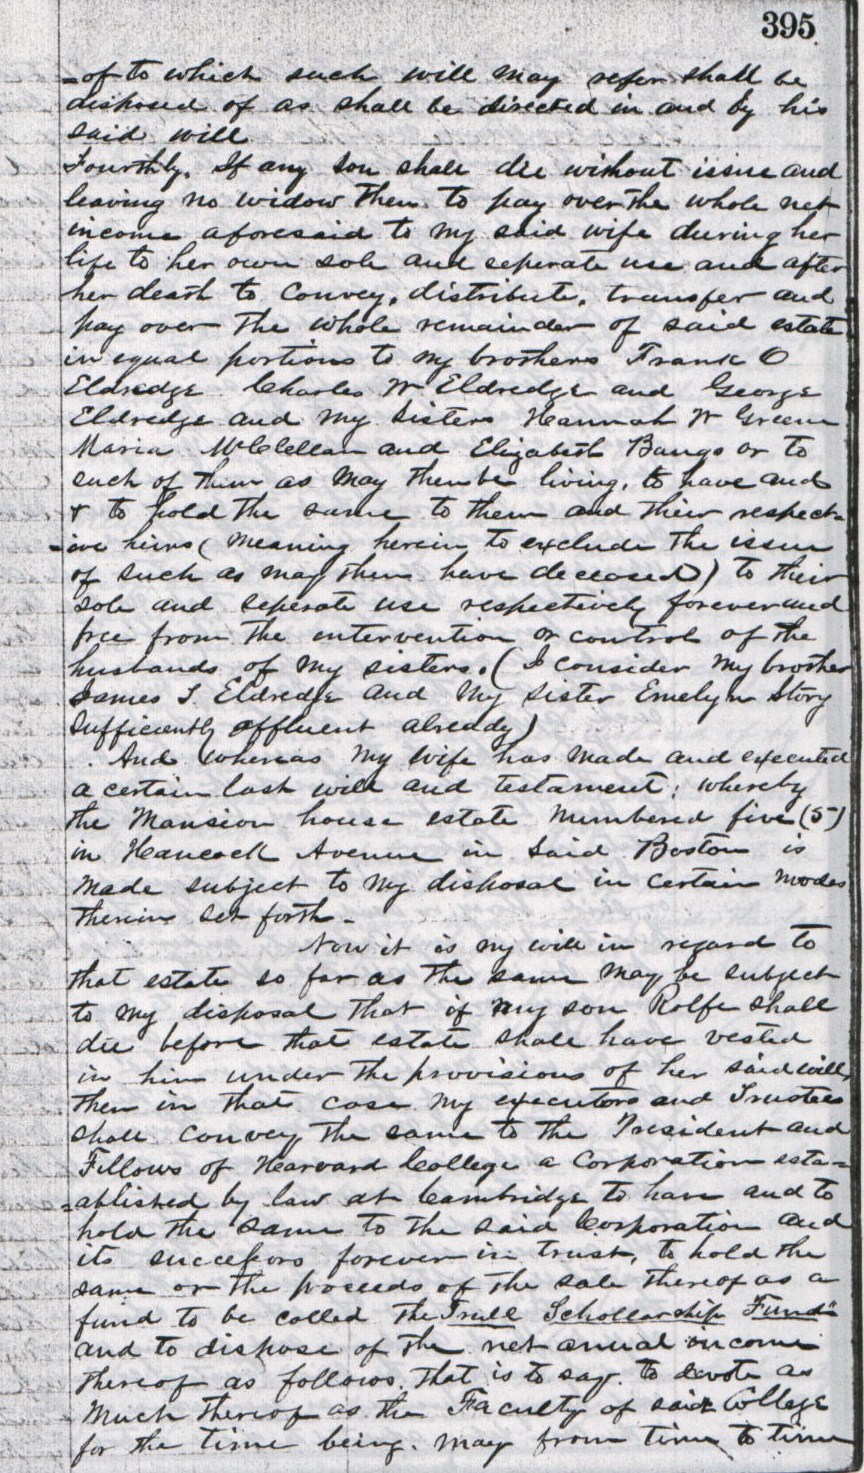 395
-of to which such will may refer shall be
disposed of as shall be directed in and by his
said will
Fourthly. If any son shall die without issue and
leaving no widow then to pay over the whole net
income aforesaid to my said wife during her
life to her own sole and seperate use and after
her death to convey, distribute, transfer and
pay over the whole remainder of said estate
in equal portions to my brothers Frank O
Eldredge Charles W Eldredge and George
Eldredge and my sisters Hannah W Greene
Maria McClellan and Elizabeth Bangs or to
such of them as may then be living, to have and
& to hold the same to them and their respect-
-ive heirs (meaning herein to exclude the issue
of such as may then have deceased) to their
sole and seperate use respectively forever and
free from the intervention or control of the
husbands of my sisters. (I consider my brother
James T. Eldredge and my sister Emelyn Story
sufficiently affluent already)
And whereas my wife has made and executed
a certain last will and testament; whereby
the Mansion house estate numbered five (5)
in Hancock Avenue in said Boston is
made subject to my disposal in certain modes
therein set forth -
Now it is my will in regard to
that estate so far as the same may be subject
to my disposal that if my son Rolfe shall
die before that estate shall have vested
in him under the provisions of her said will,
then in that case my executors and Trustees
shall convey the same to the President and
Fellows of Harvard College a Corporation esta-
-ablished by law at Cambridge to have and to
hold the same to the said Corporation and
its successors forever in trust, to hold the
same or the proceeds of the sale thereof as a
fund to be called the "Trull Schollarship Fund"
and to dispose of the net annual income
thereof as follows, that is to say. to devote as
much thereof as the Faculty of said College
for the time being. may from time to time